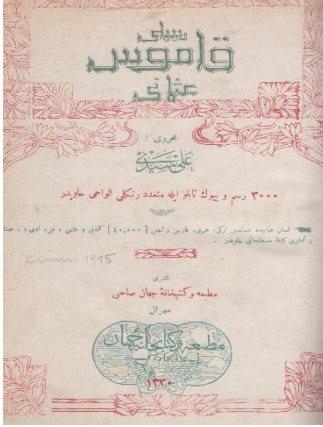 رسملی
قاموس
عثمانی
محرری :
علی سیدی
٣٠٠٠ رسم و بیوك تابلو ایله متعدد رنكلی الواحی حاویدر
لسان عثمانیده مستعمل تركی، عربی، فارسی و اجنبی [٤٠,٠٠٠] كلمه‌یی و علمی، فنی، ادبی،
و تجاری كافهٔ مصطلحاتی حاویدر .
Kamus 1915
ناشری
مطبعه و كتبخانهٔ جهان صاحبی
مهران
مطبعه و كتبخانه جهان
١٣٣٠